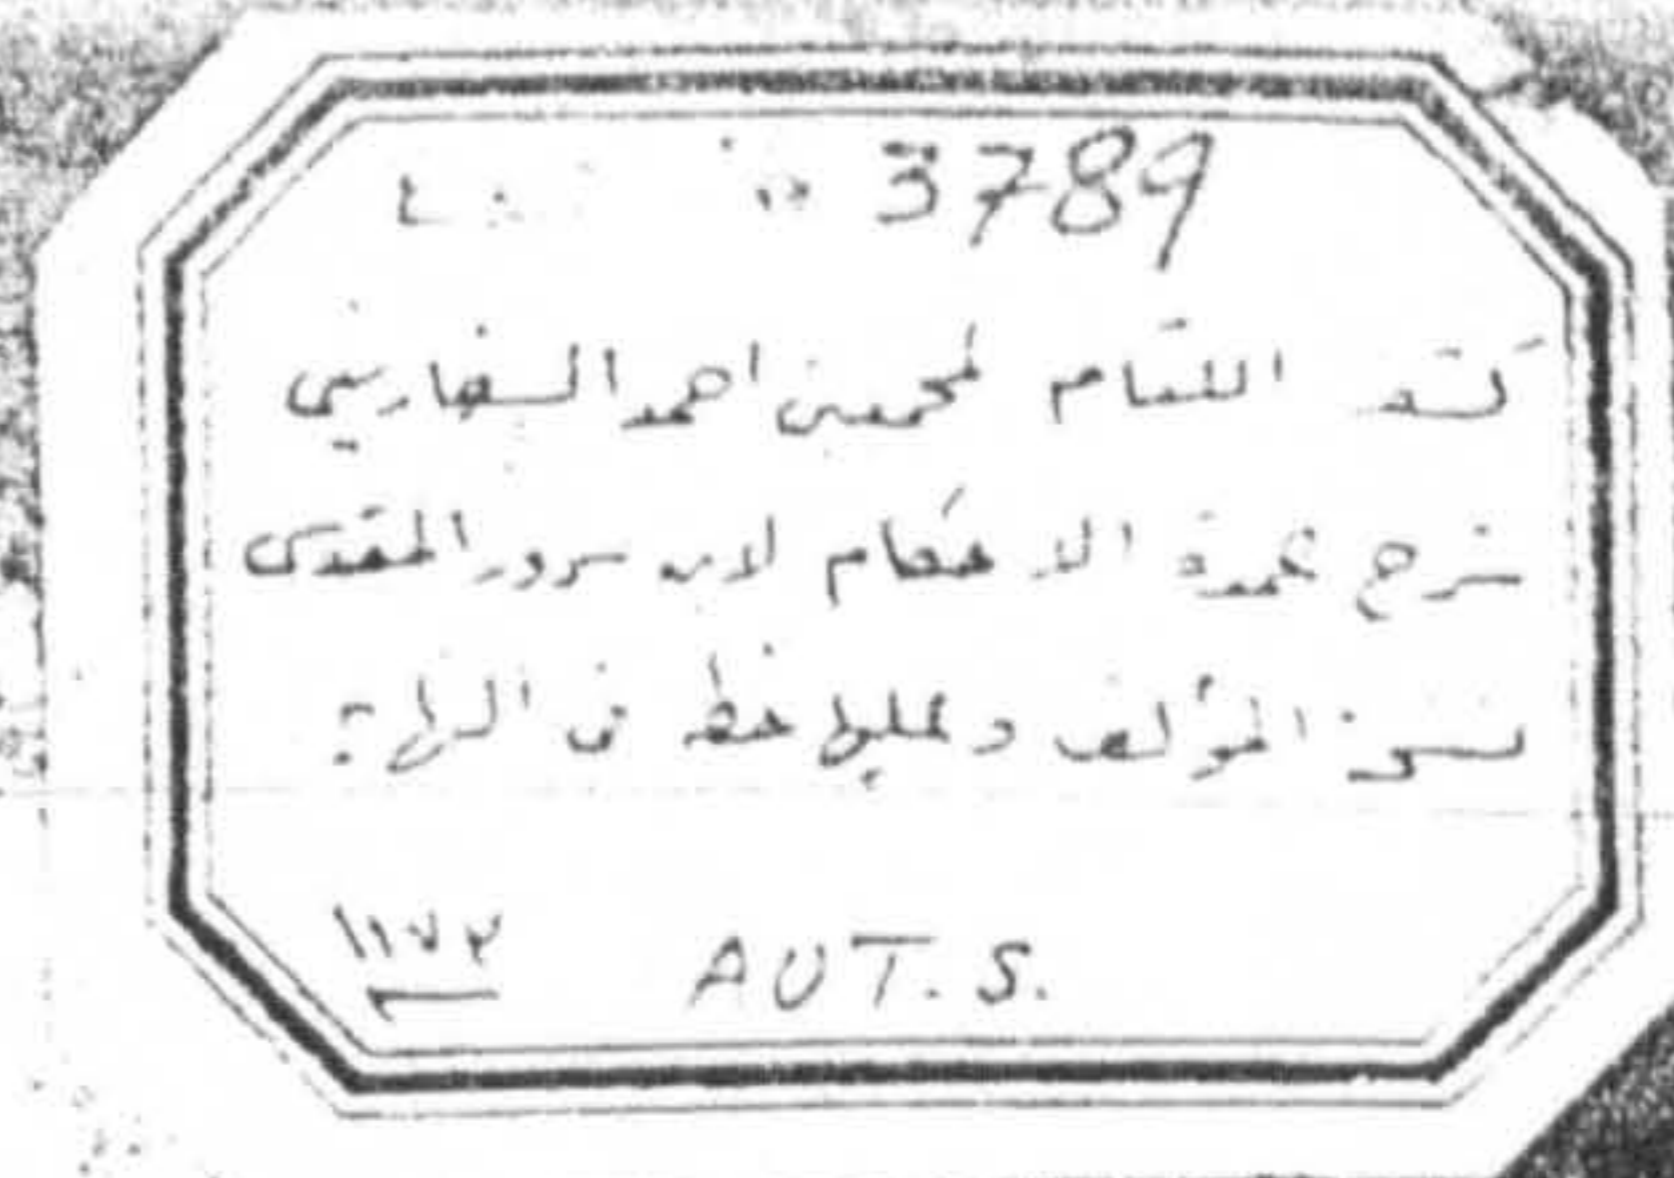 3789
كشف اللثام لمحمد بن احمد السفاريني
شرح عمدة الاحكام لابن سرور المقدسي
نسخة المؤلف وعليها خطه في
١١٧٢ AUT. S.